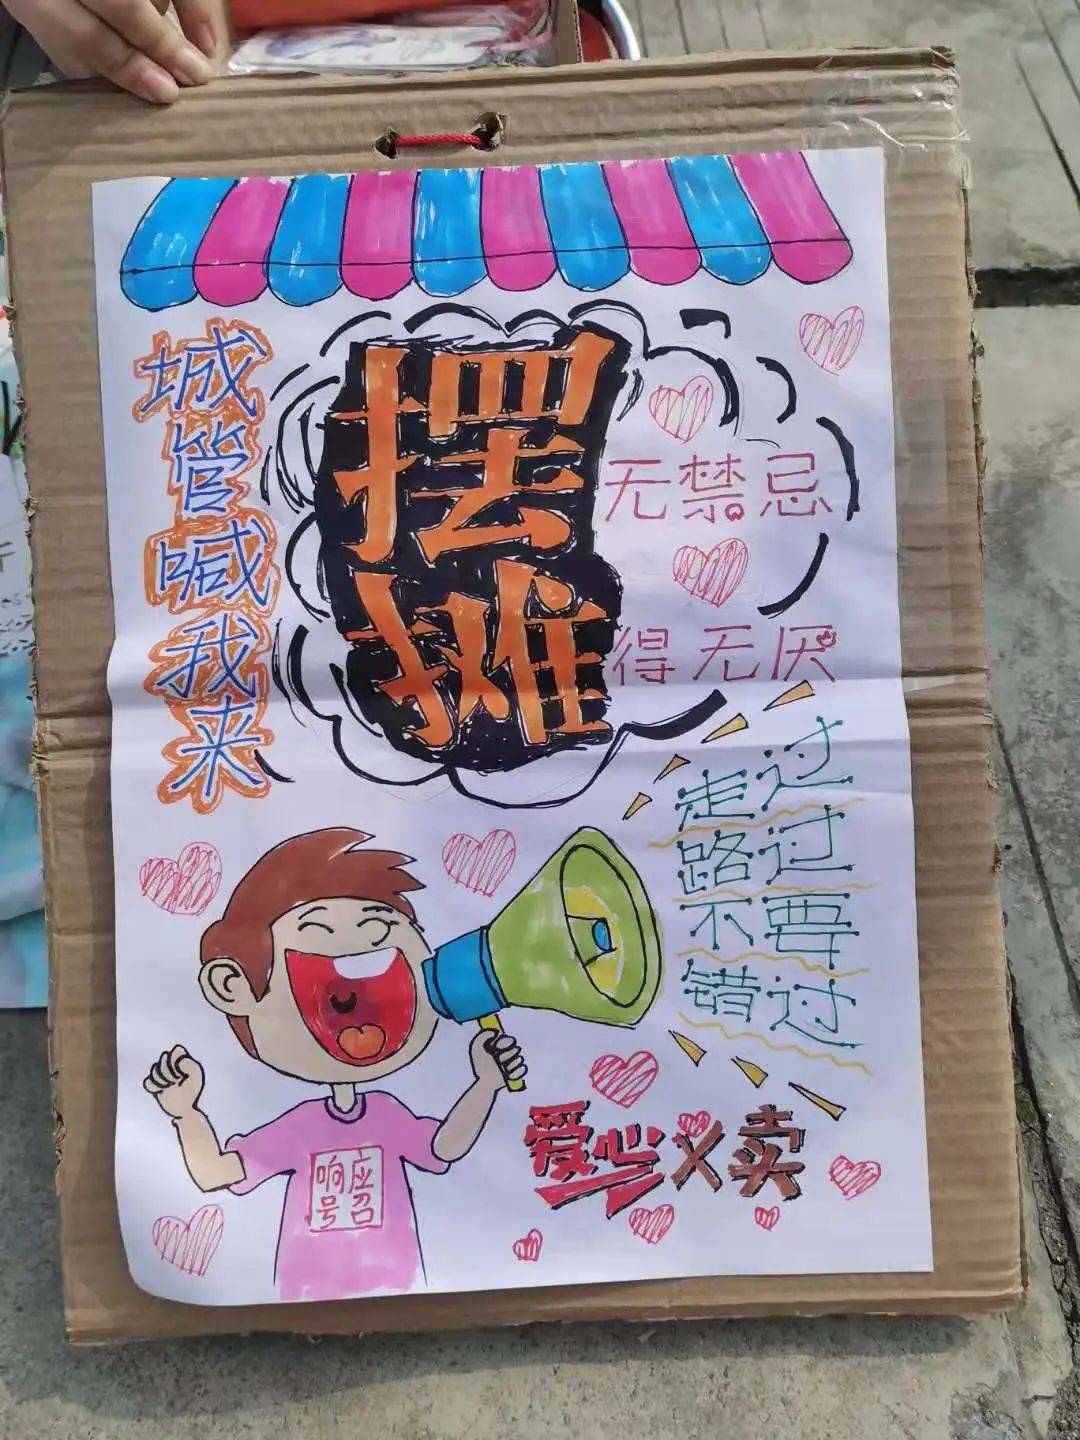 城管喊我来
摆无禁忌
摊得无厌
走过
路过
不要
错过
响应
号召
爱心义卖